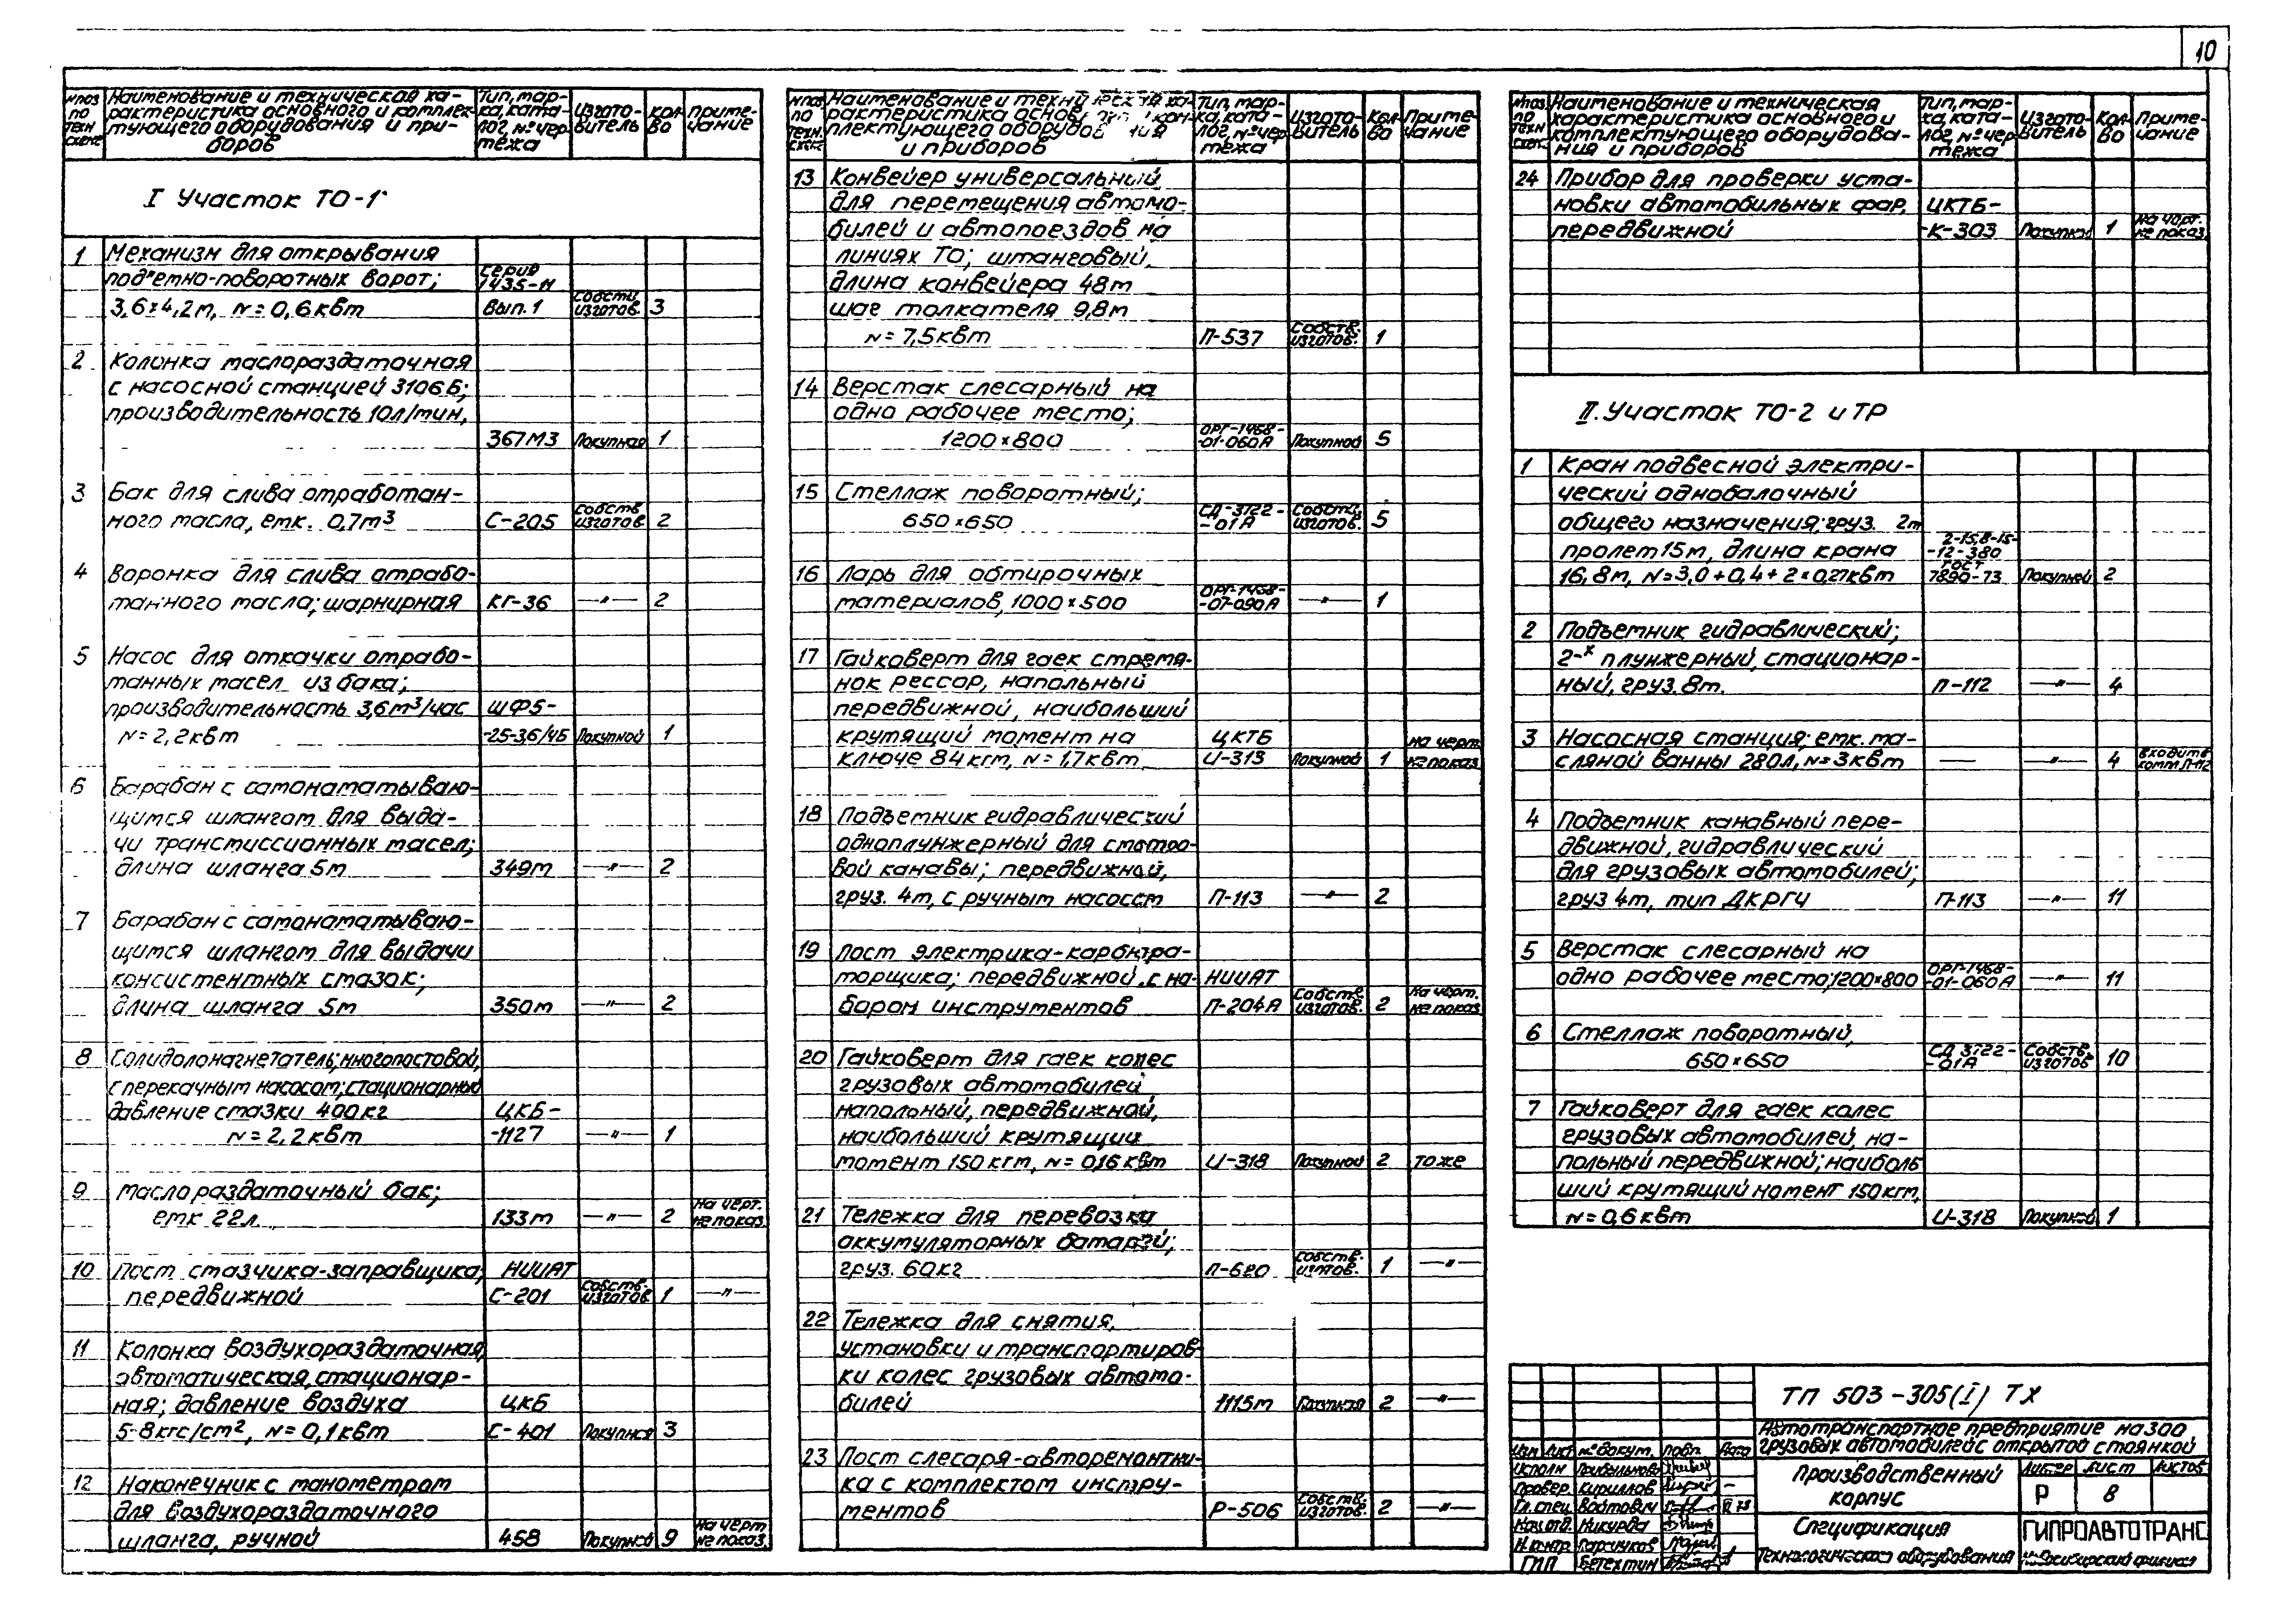 10
№ поз по техн схеме
Наименование и техническая ха-
рактеристика основного и комплек-
тующего оборудования и при-
боров
Тип, мар-
ка, ката-
лог, № чер-
тежа
Изгото-
витель
Кол-
во
Приме-
чание
I Участок ТО-1
1 Механизм для открывания
подъемно-поворотных ворот; Серия 1435-Н
3,6×4,2м, N=0,6квт Вып.1 Собств. изготов. 3
2 Колонка маслораздаточная
с насосной станцией 3106Б;
производительность 10л/мин,
367М3 Покупная 1
3 Бак для слива отработан-
ного масла, емк. 0,7м³ С-205 Собств. изготов. 2
4 Воронка для слива отрабо-
танного масла; шарнирная КГ-36 —"— 2
5 Насос для откачки отрабо-
танных масел из бака;
производительность 3,6м³/час ШФ5-
N=2,2квт -25-3,6/4Б Покупной 1
6 Барабан с самонаматываю-
щимся шлангом для выда-
чи трансмиссионных масел;
длина шланга 5м 349м —"— 2
7 Барабан с самонаматываю-
щимся шлангом для выдачи
консистентных смазок;
длина шланга 5м 350м —"— 2
8 Солидолонагнетатель; многопостовой,
с перекачным насосом; стационарный
давление смазки 400кг ЦКБ-
N=2,2квт -1127 —"— 1
9 Маслораздаточный бак;
емк 22л. 133м —"— 2 На черт. не показ.
10 Пост смазчика-заправщика; НИИАТ
передвижной С-201 Собств. изготов. 1 —"—
11 Колонка воздухораздаточная,
автоматическая, стационар-
ная; давление воздуха ЦКБ
5-8кгс/см², N=0,1квт С-401 Покупная 3
12 Наконечник с манометром
для воздухораздаточного
шланга, ручной 458 Покупной 9 На черт не показ.
№ поз по техн. схеме
Наименование и техническая ха-
рактеристика основного и ком-
плектующего оборудования
и приборов
Тип, мар-
ка, ката-
лог, № чер-
тежа
Изгото-
витель
Кол-
во
Приме-
чание
13 Конвейер универсальный
для перемещения автомо-
билей и автопоездов на
линиях ТО; штанговый,
длина конвейера 48м
шаг толкателя 9,8м
N=7,5квт П-537 Собств. изготов. 1
14 Верстак слесарный на
одно рабочее место;
1200×800 ОРГ-1468- -01-060А Покупной 5
15 Стеллаж поворотный;
650×650 СД-3722- -01А Собств. изготов. 5
16 Ларь для обтирочных
материалов, 1000×500 ОРГ-1468- -07-090А —"— 1
17 Гайковерт для гаек стремя-
нок рессор, напольный
передвижной, наибольший
крутящий момент на ЦКТБ
ключе 84кгм, N=1,7квт И-313 Покупной 1 на черт. не показ
18 Подъемник гидравлический
одноплунжерный для смотро-
вой канавы; передвижной,
груз. 4т, с ручным насосом П-113 —"— 2
19 Пост электрика-карбюра-
торщика; передвижной, с на- НИИАТ
бором инструментов П-204А Собств. изготов. 2 На черт. не показ
20 Гайковерт для гаек колес
грузовых автомобилей
напольный, передвижной,
наибольший крутящий
момент 150кгм, N=0,16квт И-318 Покупной 2 тоже
21 Тележка для перевозки
аккумуляторных батарей;
груз. 60кг П-620 Собств. изготов. 1 —"—
22 Тележка для снятия,
установки и транспортиров-
ки колес грузовых автомо-
билей 1115м Покупная 2 —"—
23 Пост слесаря-авторемонтни-
ка с комплектом инстру-
ментов Р-506 Собств. изготов. 2 —"—
№ поз. по техн схеме
Наименование и техническая
характеристика основного и
комплектующего оборудова-
ния и приборов
Тип, мар-
ка, ката-
лог, № чер-
тежа
Изгото-
витель
Кол-
во
Приме-
чание
24 Прибор для проверки уста-
новки автомобильных фар, ЦКТБ-
передвижной -К-303 Покупной 1 на черт. не показ.
II. Участок ТО-2 и ТР
1 Кран подвесной электри-
ческий однобалочный
общего назначения; груз. 2т
пролет 15м, длина крана 2-15,8-15- -12-380
16,8м, N=3,0+0,4+2×0,27квт ГОСТ 7890-73 Покупной 2
2 Подъемник гидравлический;
2-х плунжерный, стационар-
ный, груз. 8т. П-112 —"— 4
3 Насосная станция; емк. ма-
сляной ванны 280л, N=3квт — —"— 4 входит в комп. П-112
4 Подъемник канавный пере-
движной, гидравлический
для грузовых автомобилей;
груз 4т, тип ДКРГЧ П-113 —"— 11
5 Верстак слесарный на
одно рабочее место; 1200×800 ОРГ-1468- -01-060А —"— 11
6 Стеллаж поворотный,
650×650 СД 3722- -01А Собств. изготов 10
7 Гайковерт для гаек колес
грузовых автомобилей, на-
польный передвижной; наиболь-
ший крутящий момент 150кгм,
N=0,6квт И-318 Покупной 1
ТП 503-305(I) ТХ
Автотранспортное предприятие на 300
грузовых автомобилей с открытой стоянкой
Изм Лист № докум. Подп. Дата
Исполн
Провер. Кириллов
Гл. спец. Войтович
Нач. отд. Микурда
Н. контр
ГИП Бетехтин
Производственный
корпус
Литер Лист Листов
Р 8
Спецификация
технологического оборудования
ГИПРОАВТОТРАНС
Новосибирский филиал